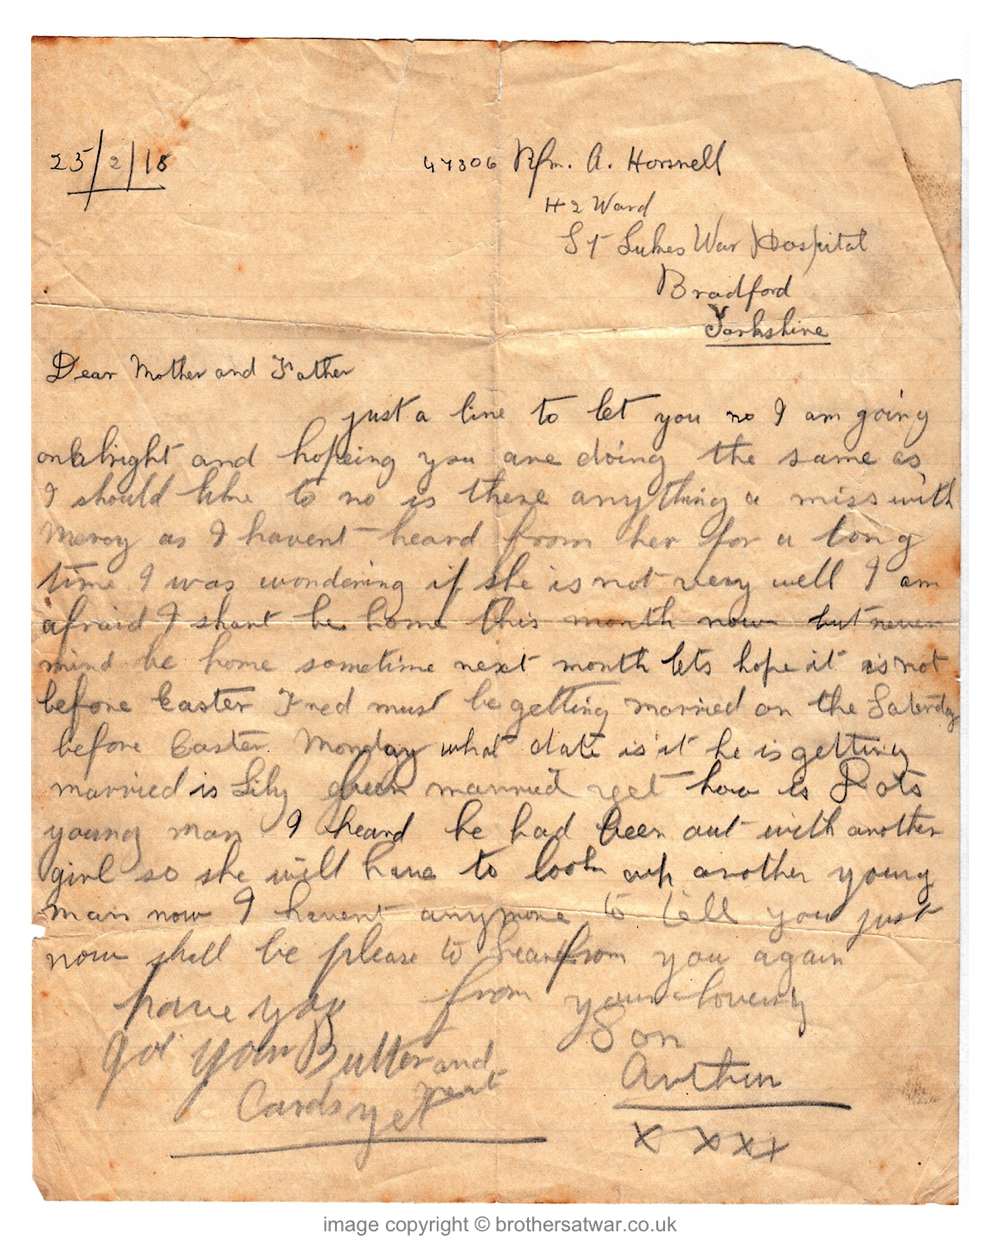 25/2/18
47306 Rfm. A. Horsnell
H2 Ward
St Lukes War Hospital
Bradford
Yorkshire
Dear Mother and Father
just a line to let you no I am going
on alright and hopeing you are doing the same as
I should like to no is there anything a miss with
Mercy as I havent heard from her for a long
time I was wondering if she is not very well I am
afraid I shant be home this month now but never
mind be home sometime next month lets hope it is not
before Easter Fred must be getting married on the Saterday
before Easter. Monday what date is it he is getting
married is Lily been married yet how is Dots
young man I heard he had been out with another
girl so she will have to look up another young
man now I havent anymore to tell you just
now shall be please to hear from you again
from your loveing
Son
Arthur
x x x x
have you
got your Butter and
meat
Cards yet
image copyright © brothersatwar.co.uk